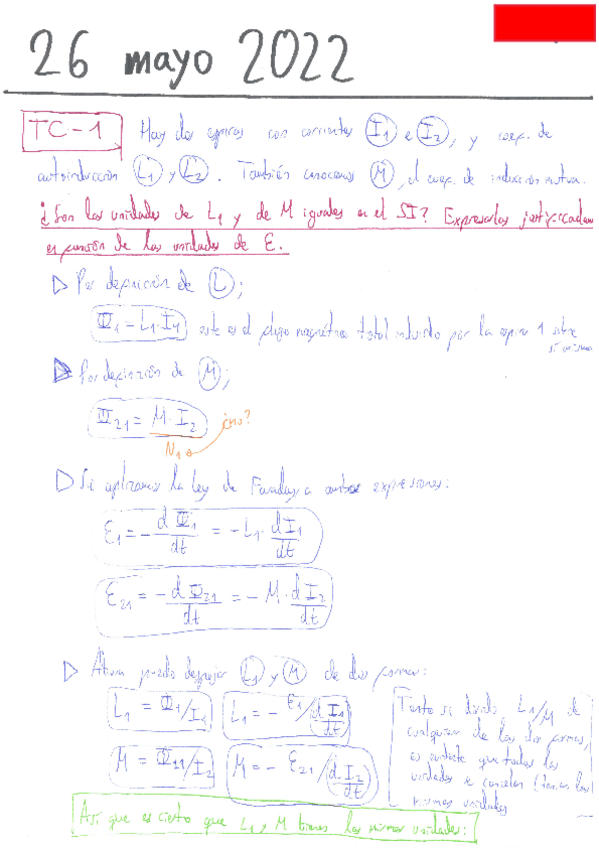 26 mayo 2022
TC-1 Hay dos espiras con corrientes I1 e I2, y coef. de
autoinducción L1 y L2. También conocemos M, el coef. de inducción mutua.
¿Son las unidades de L1 y de M iguales en el SI? Expresarlas
en función de las unidades de E.
▷ Por definición de L;
Φ1 = L1·I1 este es el flujo magnético total inducido por la espira 1 sobre
sí misma
▷ Por definición de M;
Φ21 = M·I2 ¿no?
N1
▷ Si aplicamos la ley de Faraday a ambas expresiones:
ε1 = - dΦ1/dt = -L1· dI1/dt
ε21 = - dΦ21/dt = -M· dI2/dt
▷ Ahora puedo despejar L1 y M de dos formas:
L1 = Φ1/I1 L1 = - ε1/(dI1/dt)
M = Φ21/I2 M = - ε21/(dI2/dt)
Tanto si divido L1/M de
cualquiera de las dos formas,
es que todas las
unidades se cancelan (tienen las
mismas unidades
Así que es cierto que L1 y M tienen las mismas unidades: